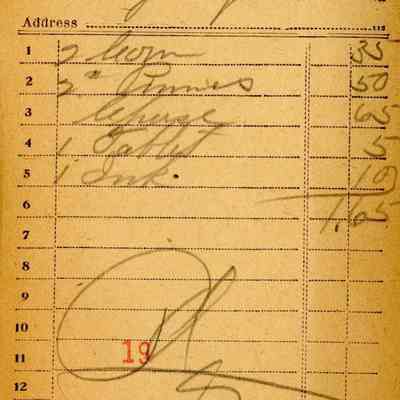 Address
1 2 Corn 35
2 2 " Prunes 50
3 Cheese 65
4 1 Tablet 5
5 1 Ink. 10
6 1.65
7
8
9
10
11 19
12